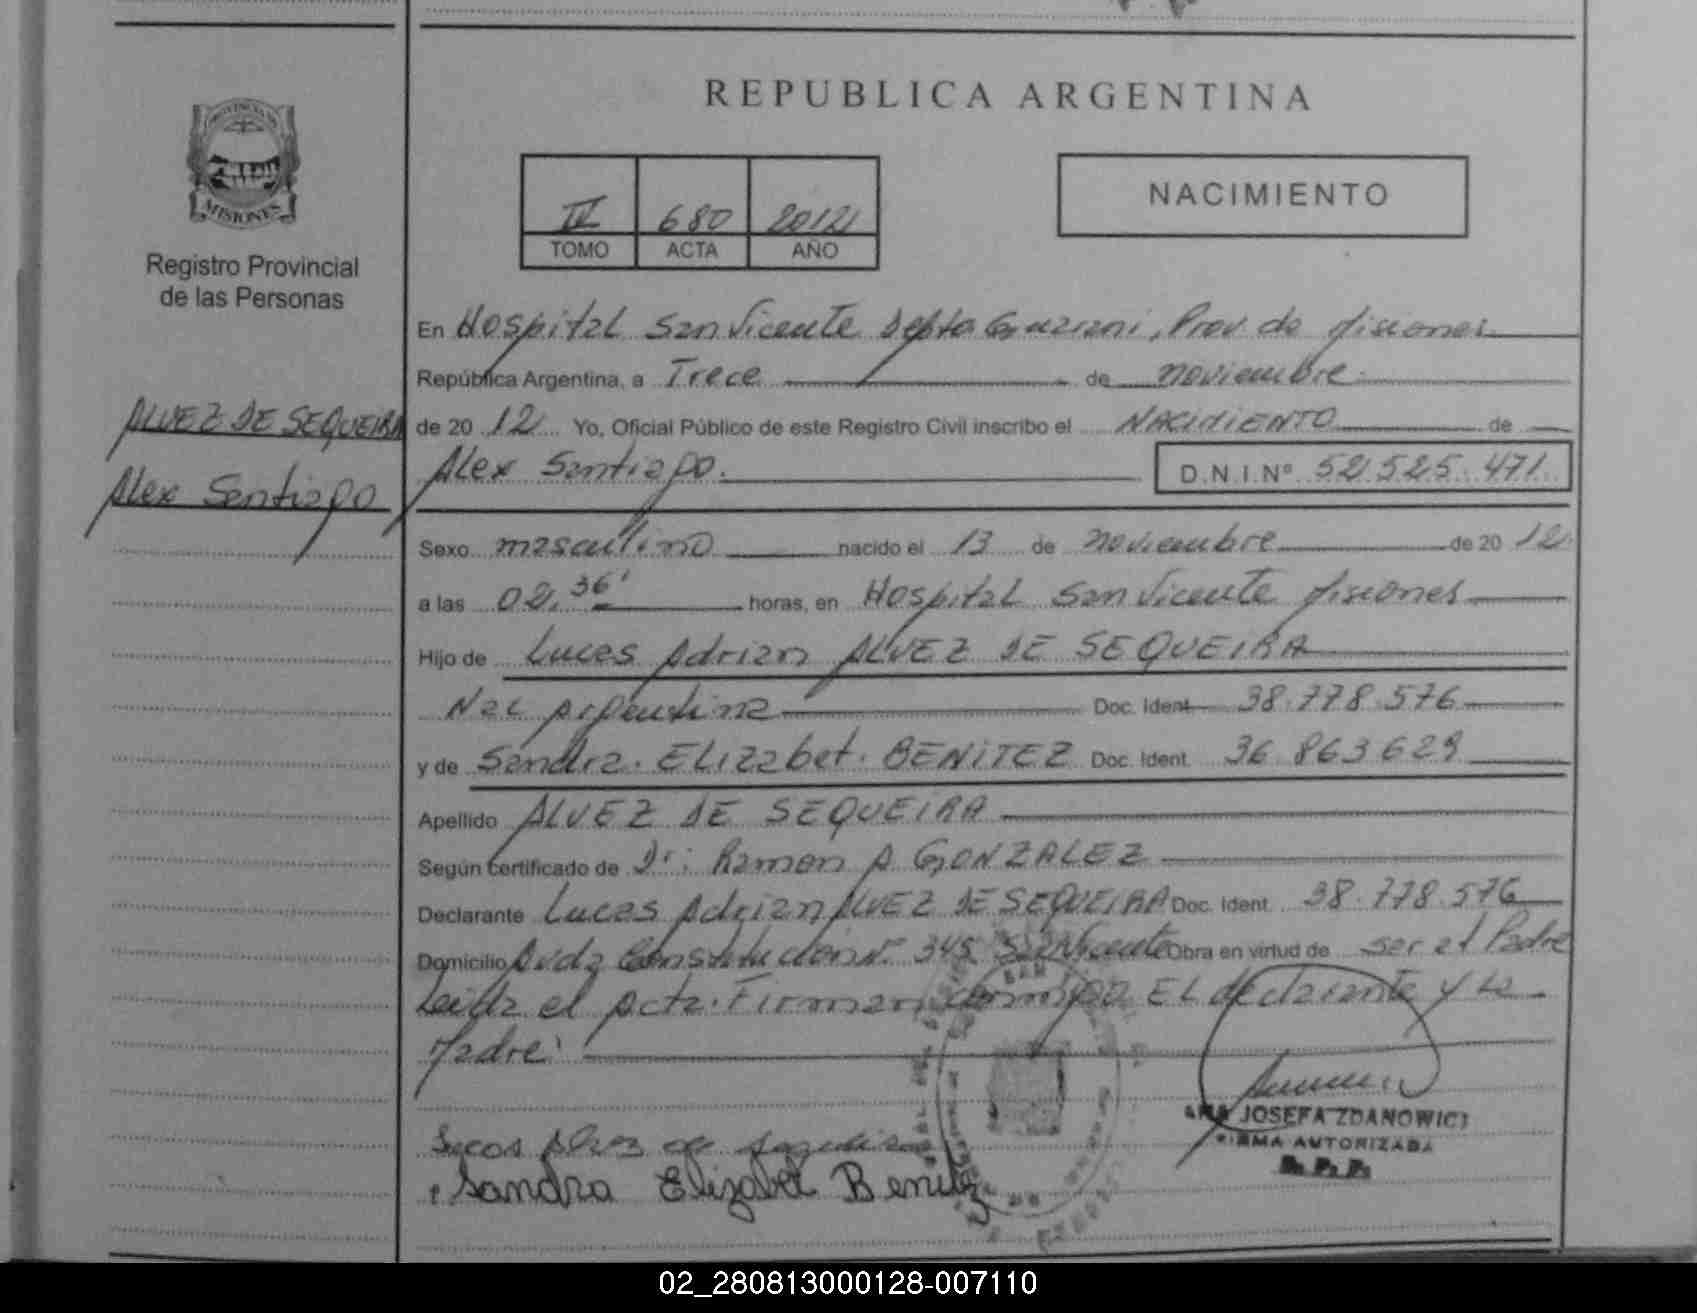 REPUBLICA ARGENTINA
PROVINCIA DE
MISIONES
Registro Provincial
de las Personas
IV 680 2012
TOMO ACTA AÑO
NACIMIENTO
ALVEZ DE SEQUEIRA
Alex Santiago
En Hospital San Vicente Depto Guarani, Prov. de Misiones
República Argentina, a Trece de noviembre
de 2012 Yo, Oficial Público de este Registro Civil inscribo el NACIMIENTO de
Alex Santiago. D.N.I.Nº 52.525.471
Sexo masculino nacido el 13 de noviembre de 2012
a las 02,36' horas, en Hospital San Vicente Misiones
Hijo de Lucas Adrian ALVEZ DE SEQUEIRA
Nac Argentina Doc. Ident. 38.778.576
y de Sandra. ELizabet. BENITEZ Doc. Ident. 36.863.629
Apellido ALVEZ DE SEQUEIRA
Según certificado de Dr: Ramon A GONZALEZ
Declarante Lucas Adrian ALVEZ DE SEQUEIRA Doc. Ident. 38.778.576
Domicilio Avda Constitucion Nº 345 San Vicente Obra en virtud de ser el Padre
Leida el Acta. Firman conmigo EL declarante y La
Madre:
Lucas Alvez de Sequeira
Sandra Elizabet Benitez
ANA JOSEFA ZDANOWICZ
FIRMA AUTORIZADA
R. P. P.
02_280813000128-007110